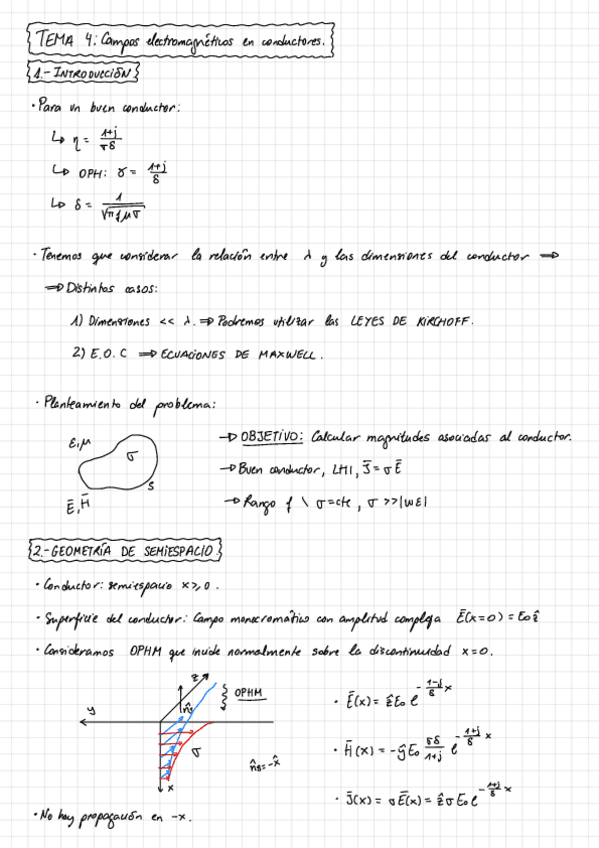 TEMA 4: Campos electromagnéticos en conductores.
1.- INTRODUCCIÓN
· Para un buen conductor:
↳ η = (1+j)/(σδ)
↳ OPH: γ = (1+j)/δ
↳ δ = 1/√(πfμσ)
· Tenemos que considerar la relación entre λ y las dimensiones del conductor ⇒
⇒ Distintos casos:
1) Dimensiones << λ. ⇒ Podremos utilizar las LEYES DE KIRCHOFF.
2) E.O.C ⇒ ECUACIONES DE MAXWELL.
· Planteamiento del problema:
ε,μ
σ
S
Ē,H̄
→ OBJETIVO: Calcular magnitudes asociadas al conductor.
→ Buen conductor, LHI, J̄=σĒ
→ Rango f \ σ=cte, σ >>|ωε|
2.- GEOMETRÍA DE SEMIESPACIO
· Conductor: semiespacio x≥0.
· Superficie del conductor: Campo monocromático con amplitud compleja Ē(x=0) = E₀ẑ
· Consideramos OPHM que incide normalmente sobre la discontinuidad x=0.
z
OPHM
n̂s
y
σ
n̂s=-x̂
x
· Ē(x) = ẑE₀ e^(-(1-j)/δ x)
· H̄(x) = -ŷE₀ (σδ)/(1+j) e^(-(1+j)/δ x)
· J̄(x) = σĒ(x) = ẑσE₀ e^(-(1+j)/δ x)
· No hay propagación en -x.